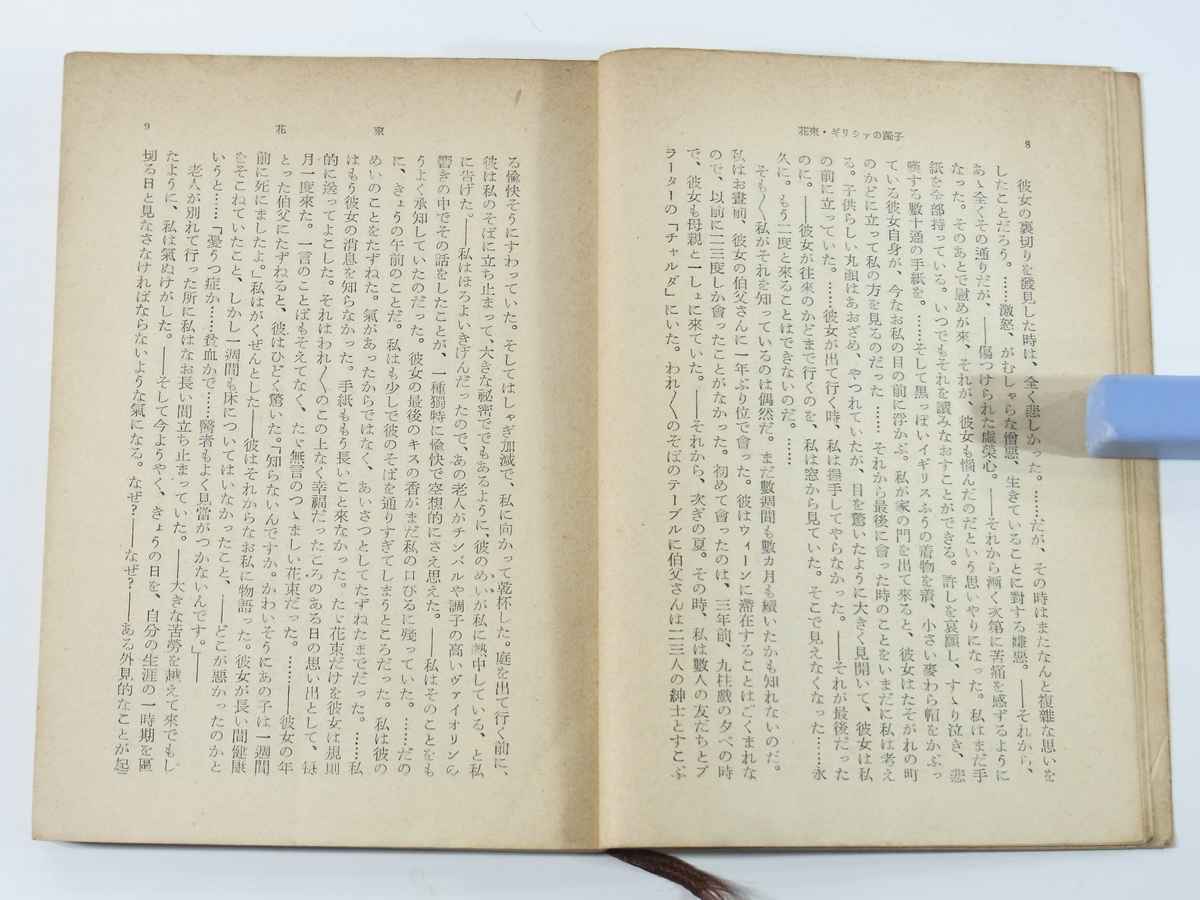 花束・ギリシァの踊子
8
彼女の裏切りを發見した時は、全く悲しかった。……だが、その時はまたなんと複雜な思いを
したことだろう。……激怒、がむしゃらな憎惡、生きていることに對する嫌惡。――それから、
あゝ全くその通りだが、――傷つけられた虛榮心。――それから漸く次第に苦痛を感ずるように
なった。そのあとで慰めが來、それが、彼女も惱んだのだという思いやりになった。私はまだ手
紙を全部持っている。いつでもそれを讀みなおすことができる。許しを哀願し、すゝり泣き、悲
嘆する數十通の手紙を。……そして黑っぽいイギリスふうの着物を着、小さい麥わら帽をかぶっ
ている彼女自身が、今なお私の目の前に浮かぶ。私が家の門を出て來ると、彼女はたそがれの町
のかどに立って私の方を見るのだった……それから最後に會った時のことをいまだに私は考え
る。子供らしい丸顏はあおざめ、やつれていたが、目を驚いたように大きく見開いて、彼女は私
の前に立っていた。……彼女が出て行く時、私は握手してやらなかった。――それが最後だった
のに。――彼女が往來のかどまで行くのを、私は窓から見ていた。そこで見えなくなった……永
久に。もう二度と來ることはできないのだ。……
そも〱私がそれを知っているのは偶然だ。まだ數週間も數カ月も續いたかも知れないのだ。
私はお晝前、彼女の伯父さんに一年ぶり位で會った。彼はウィーンに滯在することはごくまれな
ので、以前に二三度しか會ったことがなかった。初めて會ったのは、三年前、九柱戲の夕べの時
で、彼女も母親と一しょに來ていた。――それから、次ぎの夏。その時、私は數人の友だちとプ
ラーターの「チャルダ」にいた。われ〱のそばのテーブルに伯父さんは二三人の紳士とすこぶ
花束
9
る愉快そうにすわっていた。そしてはしゃぎ加減で、私に向かって乾杯した。庭を出て行く前に、
彼は私のそばに立ち止まって、大きな祕密ででもあるように、彼のめいが私に熱中している、と私
に告げた。――私はほろよいきげんだったので、あの老人がチンバルや調子の高いヴァイオリンの
響きの中でその話をしたことが、一種獨特に愉快で空想的にさえ思えた。――私はそのことをも
うよく承知していたのだった。彼女の最後のキスの香がまだ私の口びるに殘っていた。……だの
に、きょうの午前のことだ。私はも少しで彼のそばを通りすぎてしまうところだった。私は彼の
めいのことをたずねた。氣があったからではなく、あいさつとしてたずねたまでだった。……私
はもう彼女の消息を知らなかった。手紙ももう長いこと來なかった。たゞ花束だけを彼女は規則
的に送ってよこした。それはわれ〱のこの上なく幸福だったころのある日の思い出として、毎
月一度來た。一言のことばもそえてなく、たゞ無言のつゝましい花束だった。………――彼女の年
とった伯父にたずねると、彼はひどく驚いた。「知らないんですか。かわいそうにあの子は一週間
前に死にましたよ。」私はがくぜんとした――彼はそれからなお私に物語った。彼女が長い間健康
をそこねていたこと、しかし一週間も床についてはいなかったこと、――どこが惡かったのかと
いうと……「憂うつ症か……貧血かで……醫者もよく見當がつかないんです。」――
老人が別れて行った所に私はなお長い間立ち止まっていた。――大きな苦勞を越えて來でもし
たように、私は氣ぬけがした。――そして今ようやく、きょうの日を、自分の生涯の一時期を區
切る日と見なさなければならないような氣になる。なぜ？――なぜ？――ある外見的なことが起